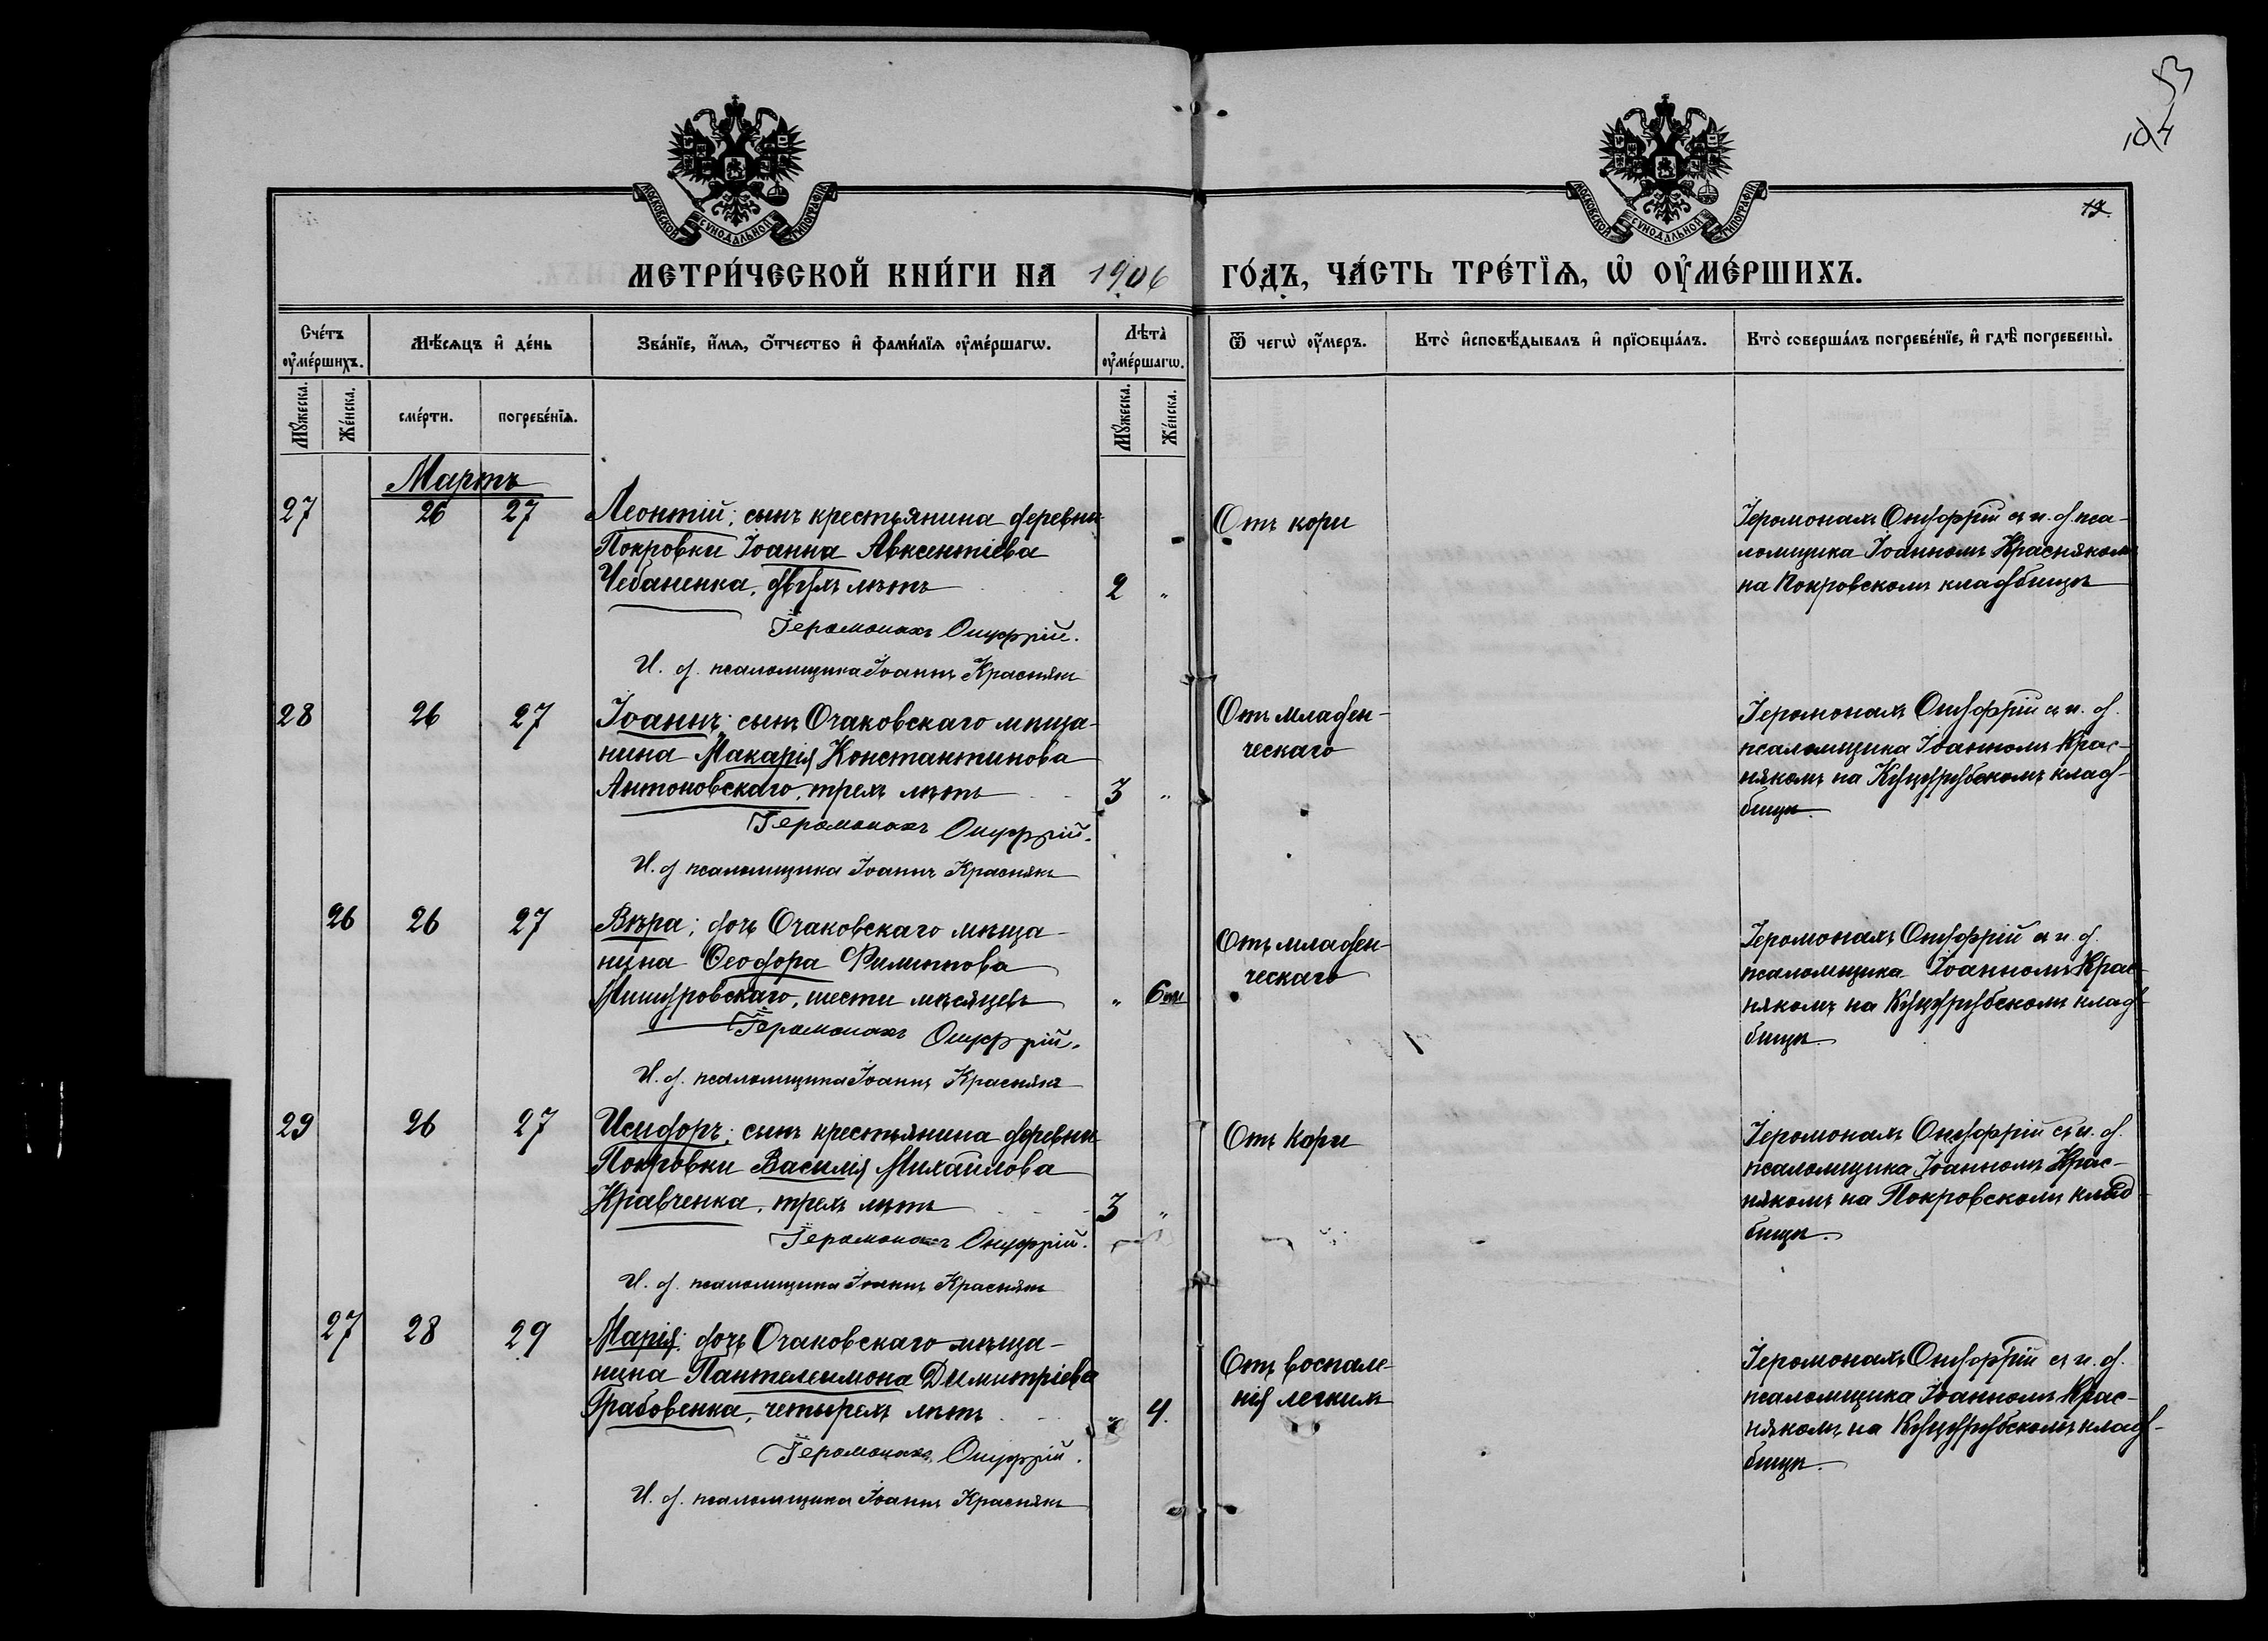 53
104
МОСКОВСКОЙ СѴНОДАЛЬНОЙ ТИПОГРАФІИ
МОСКОВСКОЙ СѴНОДАЛЬНОЙ ТИПОГРАФІИ
МЕТРИ́ЧЕСКОЙ КНИ́ГИ НА 1906 ГО́ДЪ, ЧА́СТЬ ТРЕ́ТЇѦ, Ѡ҆ ОУ҆МЕ́РШИХЪ.
Сче́тъ оу҆ме́ршихъ.
Мѣ́сѧцъ и҆ де́нь
Зва́нїе, и҆́мѧ, ѻ҆́тчество и҆ фами́лїѧ оу҆ме́ршагѡ.
Лѣ́та оу҆ме́ршагѡ.
Ѿ чегѡ̀ оу҆́меръ.
Кто̀ и҆сповѣ́дывалъ и҆ прїобща́лъ.
Кто̀ соверша́лъ погребе́нїе, и҆ гдѣ̀ погребены̀.
Мꙋ́жеска.
Же́нска.
сме́рти.
погребе́нїѧ.
Мꙋ́жеска.
Же́нска.
Мартъ
27 26 27 Леонтій; сынъ крестьянина деревни
Покровки Іоанна Авксентіева
Чебаненка, двухъ лѣтъ 2 "
Іеромонахъ Онуфрій.
И. д. псаломщика Іоаннъ Краснякъ
Отъ кори
Іеромонахъ Онуфрій съ и. д. пса-
ломщика Іоанномъ Краснякомъ
на Покровскомъ кладбищѣ
28 26 27 Іоаннъ; сынъ Очаковскаго мѣща-
нина Макарія Константинова
Антоновскаго, трехъ лѣтъ 3 "
Іеромонахъ Онуфрій.
И. д. псаломщика Іоаннъ Краснякъ
Отъ младен-
ческаго
Іеромонахъ Онуфрій съ и. д.
псаломщика Іоанномъ Крас-
някомъ на Куцурубскомъ клад-
бищѣ.
26 26 27 Вѣра; дочь Очаковскаго мѣща-
нина Ѳеодора Филиппова
Мишуровскаго, шести мѣсяцевъ " 6 м.
Іеромонахъ Онуфрій.
И. д. псаломщика Іоаннъ Краснякъ
Отъ младен-
ческаго
Іеромонахъ Онуфрій съ и. д.
псаломщика Іоанномъ Крас-
някомъ на Куцурубскомъ клад-
бищѣ.
29 26 27 Исидоръ; сынъ крестьянина деревни
Покровки Василія Михайлова
Кравченка, трехъ лѣтъ 3 "
Іеромонахъ Онуфрій.
И. д. псаломщика Іоаннъ Краснякъ
Отъ кори
Іеромонахъ Онуфрій съ и. д.
псаломщика Іоанномъ Крас-
някомъ на Покровскомъ клад-
бищѣ.
27 28 29 Марія; дочь Очаковскаго мѣща-
нина Пантелеимона Димитріева
Грабовенка, четырехъ лѣтъ " 4.
Іеромонахъ Онуфрій.
И. д. псаломщика Іоаннъ Краснякъ
Отъ воспале-
нія легкихъ
Іеромонахъ Онуфрій съ и. д.
псаломщика Іоанномъ Крас-
някомъ на Куцурубскомъ клад-
бищѣ.